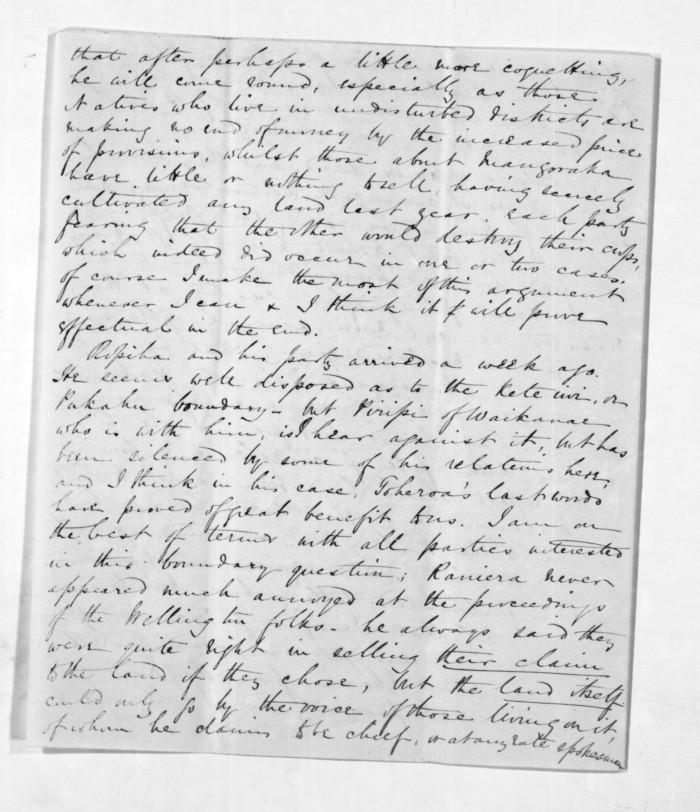 that after perhaps a little more coquetting,
he will come round, especially as those
Natives who live in undisturbed districts are
making no end of money by the increased price
of provisions, whilst those about Mangoraka
have little or nothing to sell, having scarcely
cultivated any land last year. Each party
fearing that the other would destroy their crops,
which indeed did occur in one or two cases.
Of course I make the most of this argument
whenever I can & I think it will prove
effectual in the end.
Ropiha and his party arrived a week ago.
He seems well disposed as to the or
Pukahu boundary - but Piripi of Waikanae
who is with him, is I hear against it, but has
been silenced by some of his relations here,
and I think in his case, Toheroa's last words
have proved of great benefit to us. I am on
the best of terms with all parties interested
in this boundary question; Raniera never
appeared much annoyed at the proceedings
of the Wellington folks - he always said they
were quite right in selling their claim
to the land if they chose, but the land itself
could only go by the voice of those living on it,
of whom he claims to be chief, or at any rate spokesman